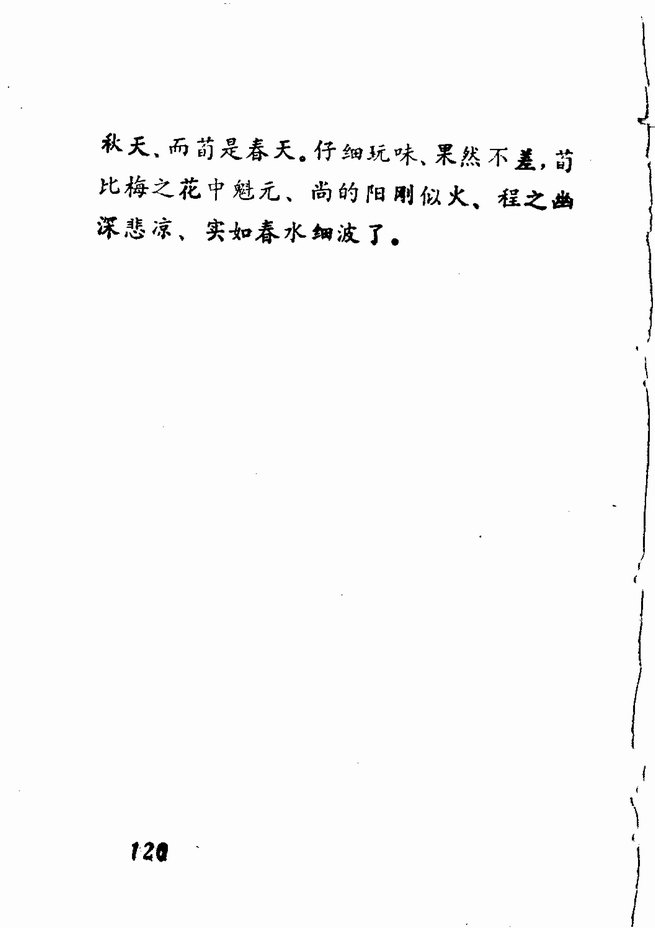 秋天、而荀是春天。仔细玩味、果然不差，荀
比梅之花中魁元、尚的阳刚似火、程之幽
深悲凉、实如春水细波了。
120